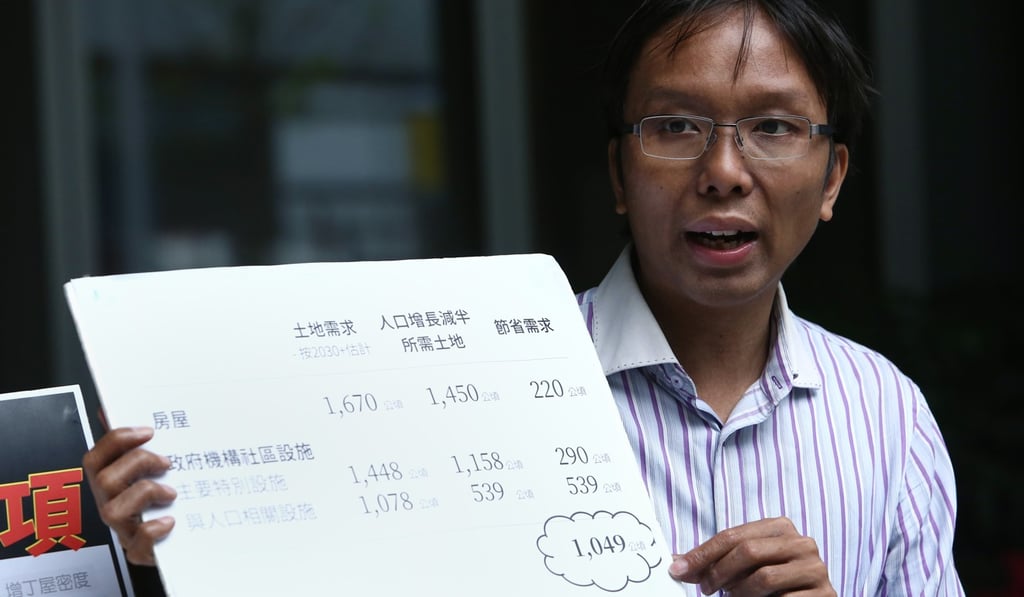 土地需求 人口增長減半 節省需求
-按2030+估計 所需土地
房屋 1,670 公頃 1,450 公頃 220 公頃
政府機構社區設施
主要特別設施 1,448 公頃 1,158 公頃 290 公頃
與人口相關設施 1,078 公頃 539 公頃 539 公頃
1,049 公頃
項
增丁屋密度